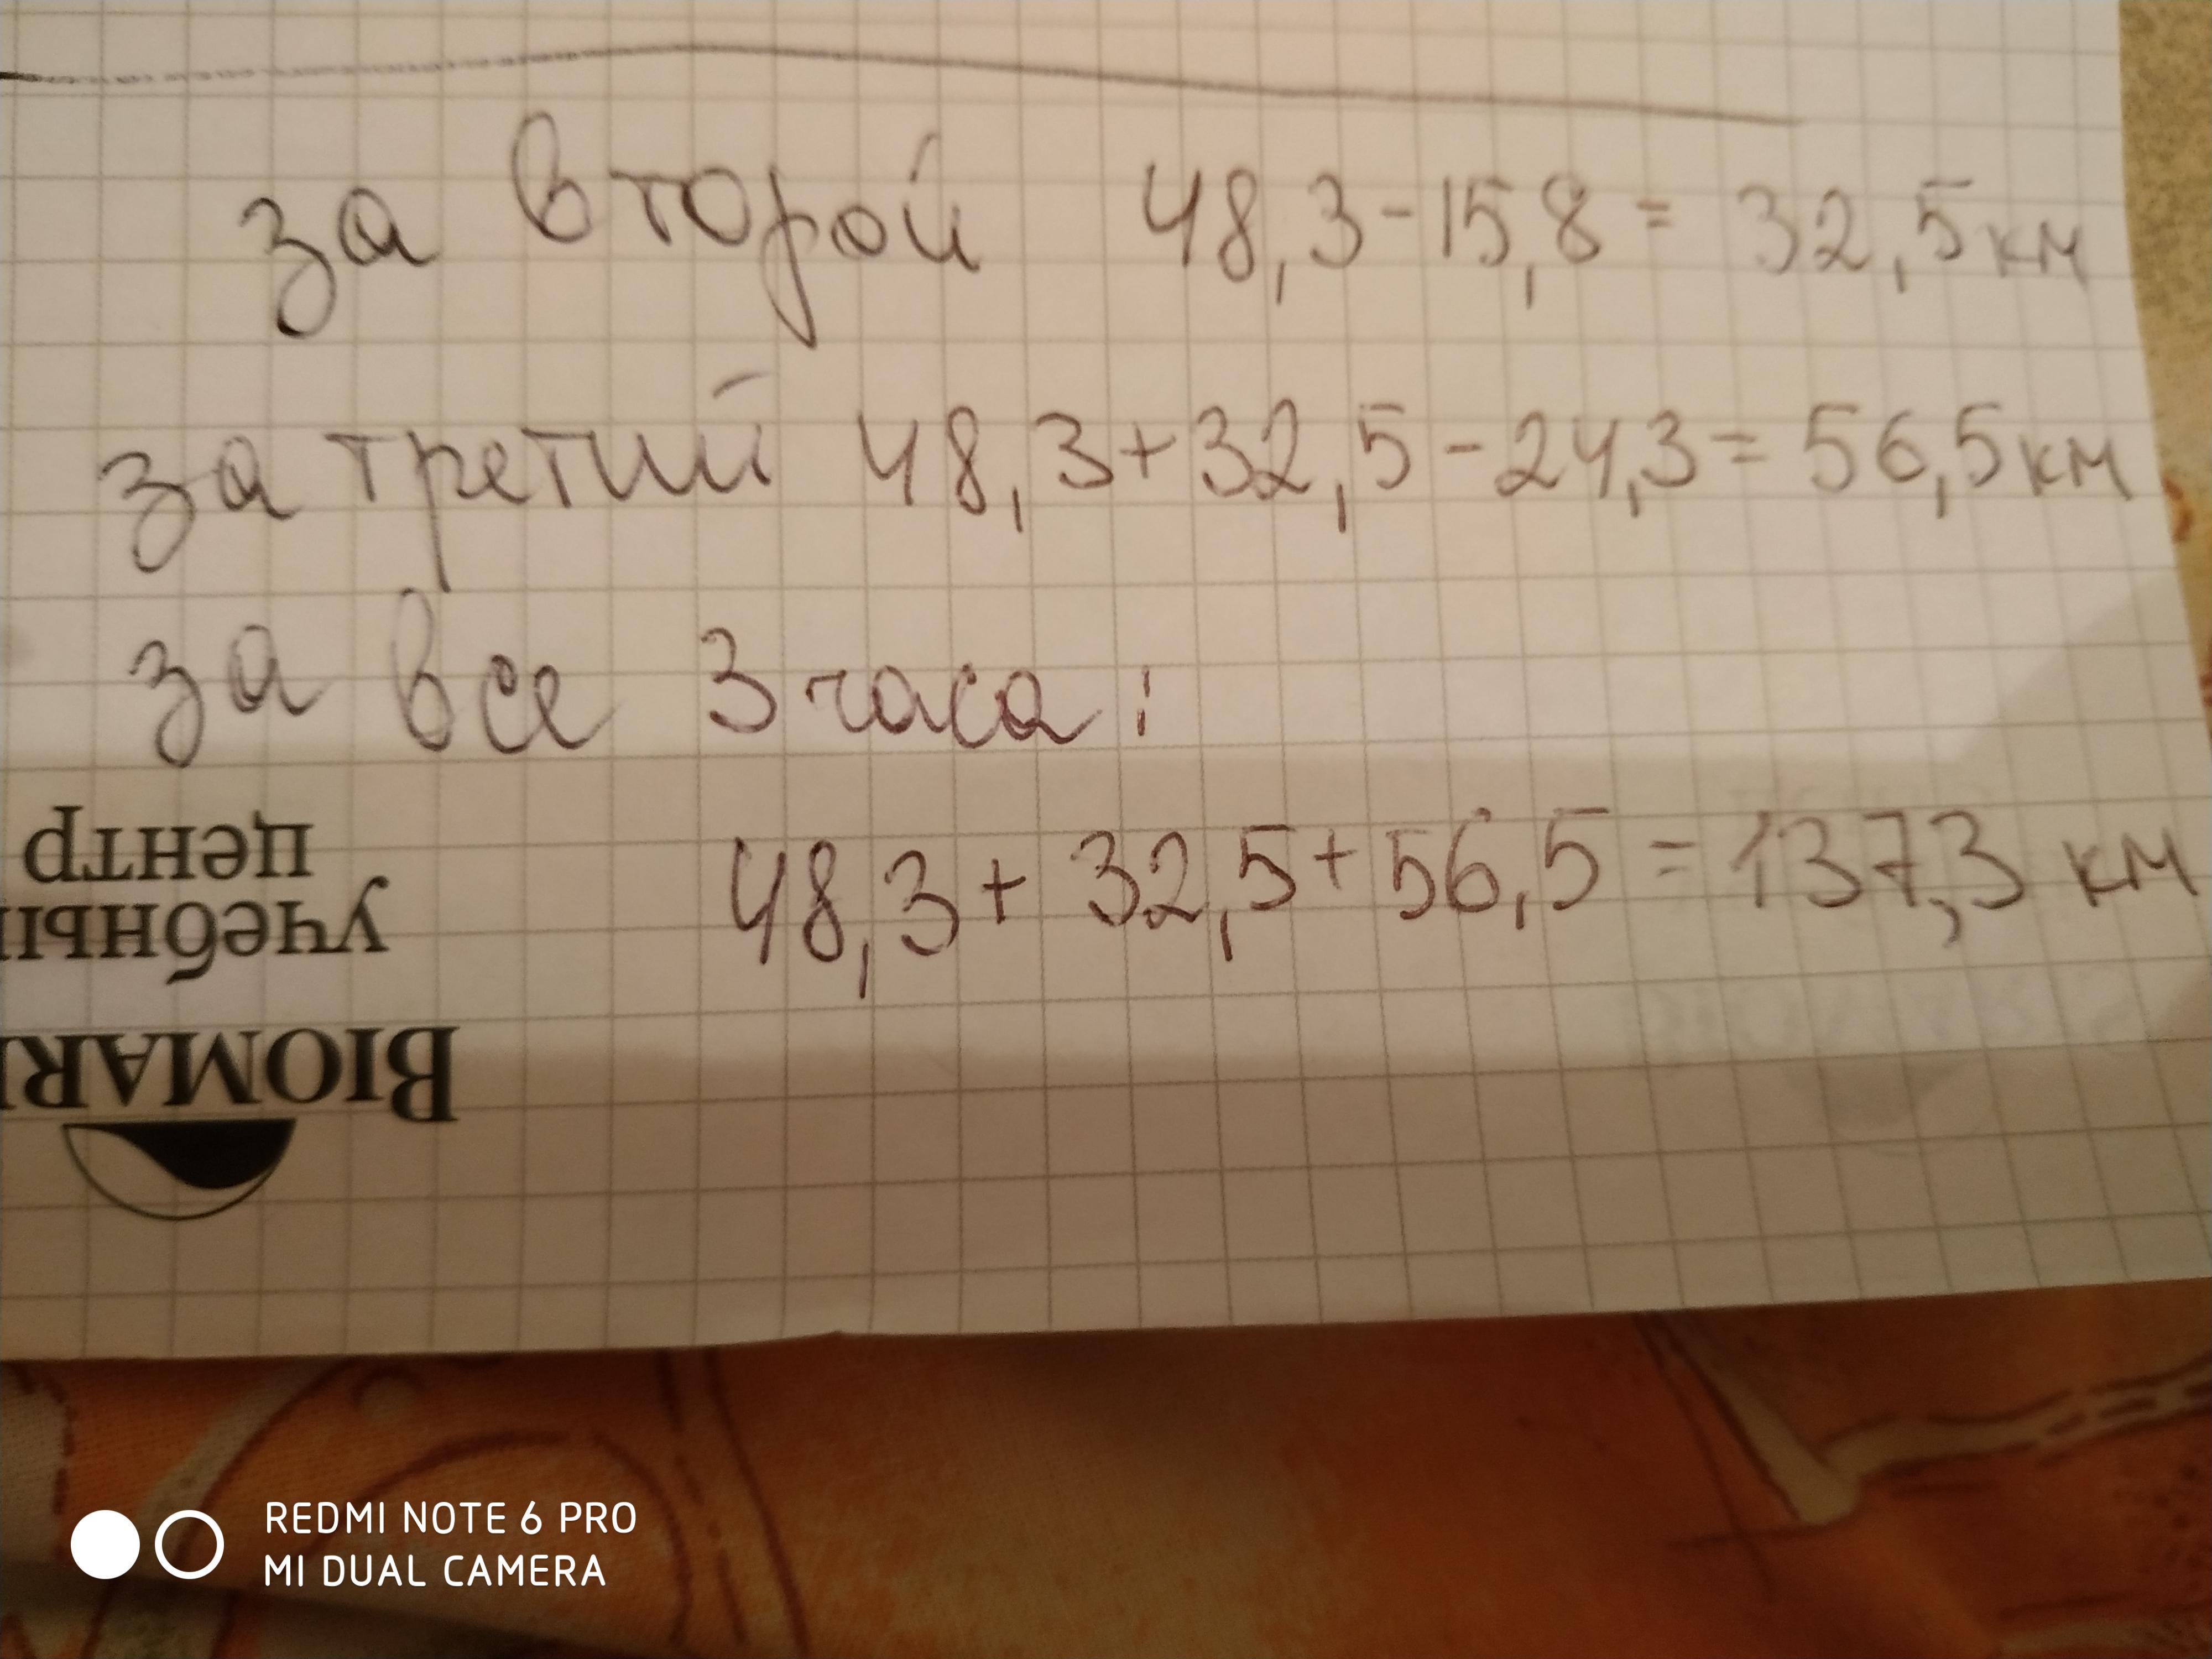 за второй 48,3-15,8= 32,5км
за третий 48,3+32,5-24,3=56,5км
за все 3 часа:
48,3+32,5+56,5=137,3 км
BIOMAR
учебны
центр
REDMI NOTE 6 PRO
MI DUAL CAMERA